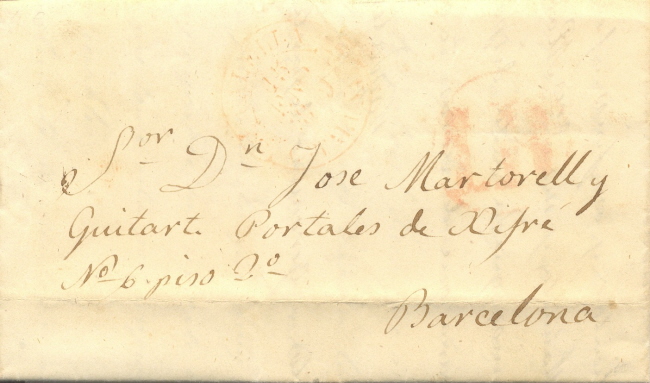 Sor Dn Jose Martorell y
Guitart. Portales de Xifré
No 6. piso 2o
Barcelona